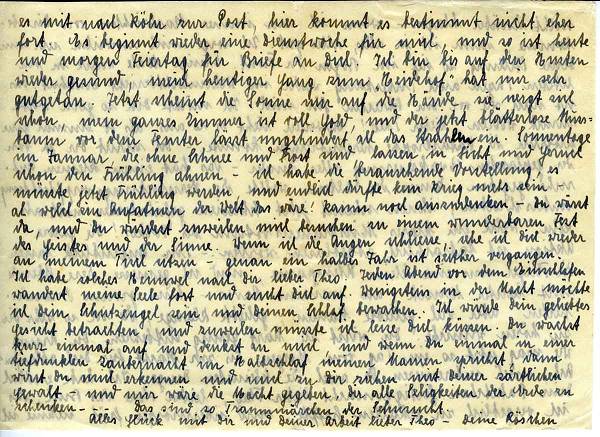 es mit nach Köln zur Post hier kommt es bestimmt nicht eher
fort. Es beginnt wieder eine Dienstwoche für mich, und so ist heute
und morgen Feiertag für Briefe an Dich. Ich bin bis auf den Husten
wieder gesund, mein heutiger Gang zum "Heidehof" hat mir sehr
gutgetan. Jetzt scheint die Sonne mir auf die Hände – sie neigt sich
schon, mein ganzes Zimmer ist voll Gold, und der jetzt blätterlose Nuss-
baum vor dem Fenster lässt ungehindert all das Strahlen ein. Sonnentage
im Januar, die ohne Schnee und Frost sind lassen in Licht und
schon den Frühling ahnen – ich habe die berauschende Vorstellung, es
müsste jetzt Frühling werden und endlich dürfte kein Krieg mehr sein
ah welch ein Aufatmen der Welt das wäre! kaum noch auszudenken – du wärst
da, und Du würdest zuweilen mich besuchen zu einem wunderbaren Fest
des Geistes und der Sinne. Wenn ich die Augen schliesse, sehe ich dich wieder
an meinem Tisch sitzen – genau ein halbes Jahr ist seither vergangen.
Ich habe solches Heimweh nach dir lieber Theo. Jeden Abend vor dem Einschlafen
wandert meine Seele fort und sucht dich auf. Wenigstens in der Nacht möchte
ich dein Schutzengel sein und deinen Schlaf bewachen. Ich würde dein geliebtes
Gesicht betrachten, und zuweilen müsste ich leise dich küssen. Du wachst
kurz einmal auf und denkst an mich und wenn du einmal in einer
tiefdunklen Januarnacht im Halbschlaf meinen Namen sprichst dann
wirst du mich erkennen und mich zu dir ziehen mit deiner zärtlichen
gewalt – und mir wäre die Macht gegeben, dir alle Seligkeiten der Erde zu
schenken – das sind so Traummärchen der Sehnsucht.
Alles Glück mit dir und deiner Arbeit lieber Theo – Deine Röschen